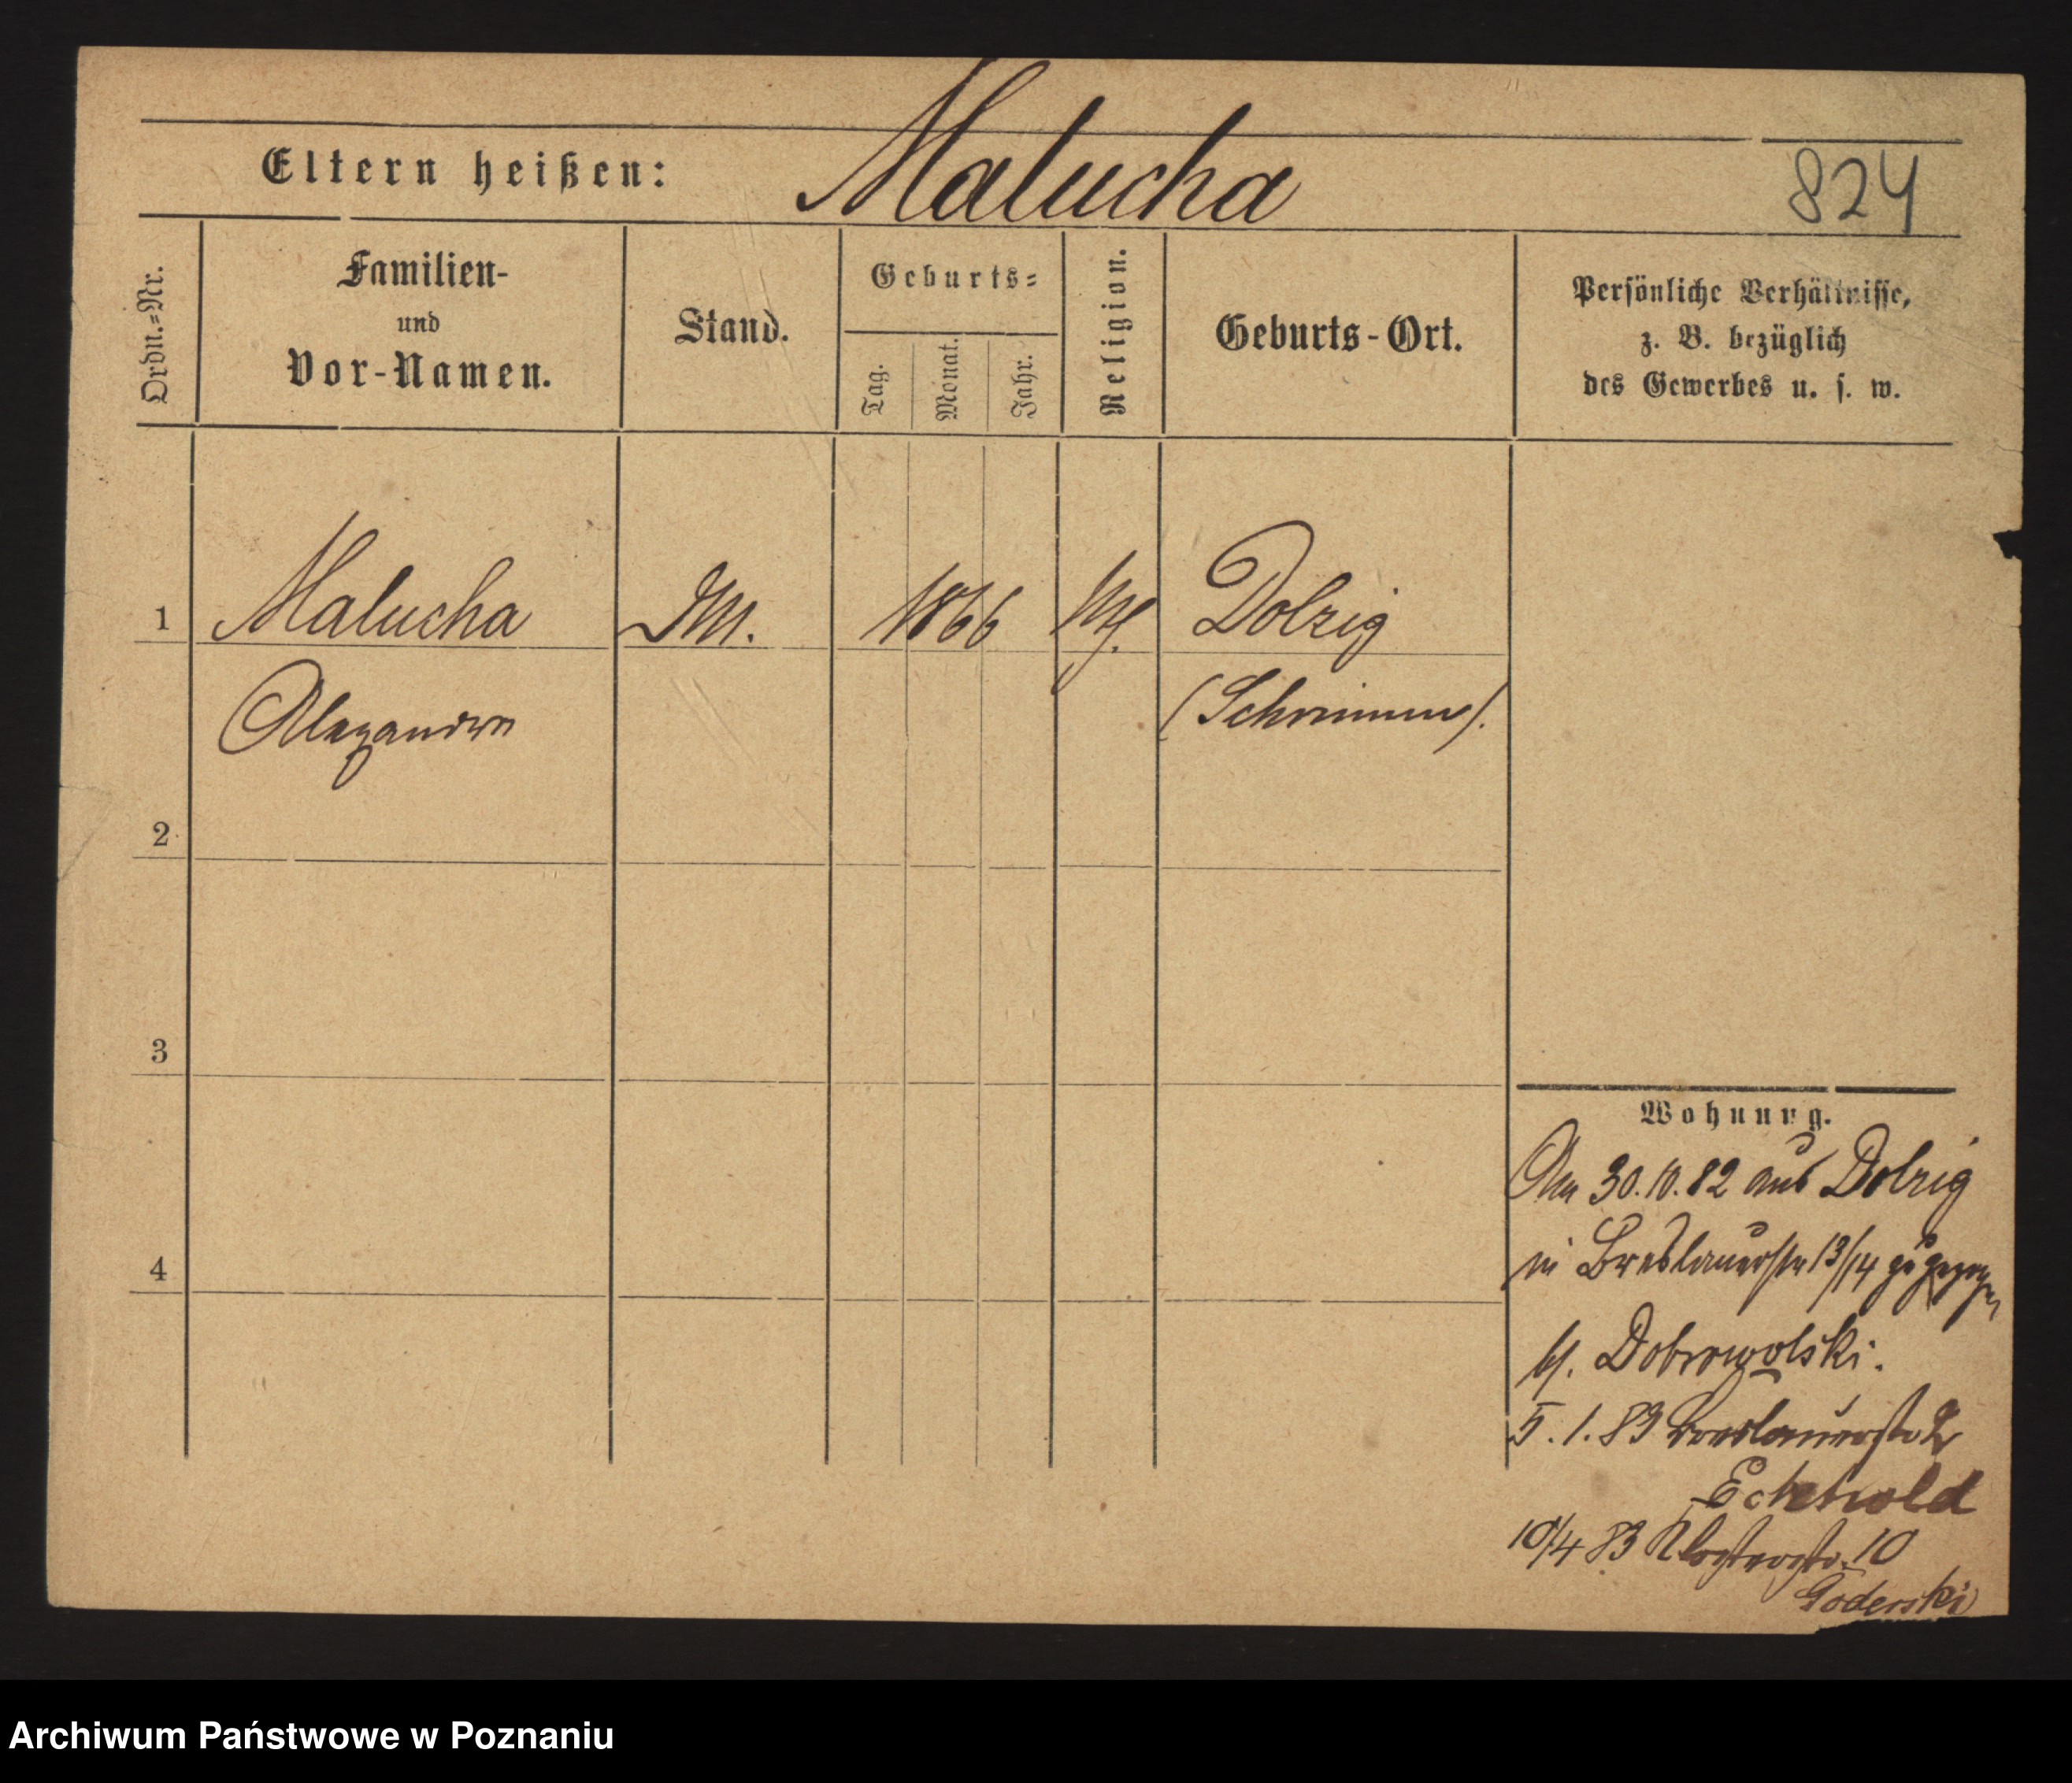 Eltern heißen: Malucha 824
Ordn.=Nr.
Familien-
und
Vor-Namen.
Stand.
Geburts=
Tag.
Monat.
Jahr.
Religion.
Geburts-Ort.
Persönliche Verhältnisse,
z. B. bezüglich
des Gewerbes u. s. w.
1 Malucha 1866 Dolzig
Alexandra (Schrimm).
2
3
4
Wohnung.
Am 30.10.82 aus Dolzig
in Breslauerstr 13/14
bj. Dobrowolski.
5.1.83 Breslauerstr
10/4 83 Klosterstr. 10
Goderski
Archiwum Państwowe w Poznaniu